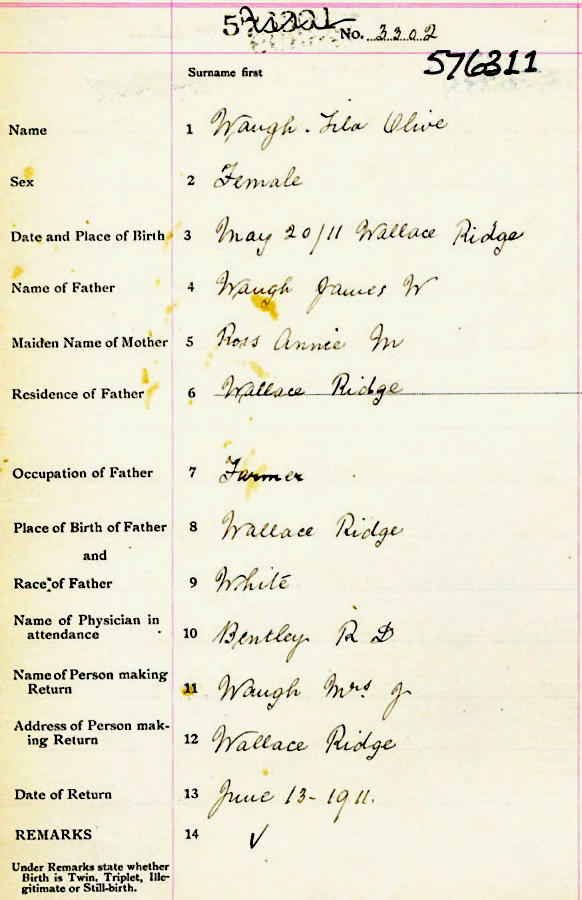 No. 3302
576311
Surname first
Name 1 Waugh. Lila Olive
Sex 2 Female
Date and Place of Birth 3 May 20/11 Wallace Ridge
Name of Father 4 Waugh James W
Maiden Name of Mother 5 Ross Annie M
Residence of Father 6 Wallace Ridge
Occupation of Father 7 Farmer
Place of Birth of Father 8 Wallace Ridge
and
Race of Father 9 White
Name of Physician in
attendance 10 Bentley R D
Name of Person making
Return 11 Waugh Mrs J
Address of Person mak-
ing Return 12 Wallace Ridge
Date of Return 13 June 13-1911.
REMARKS 14 ✓
Under Remarks state whether
Birth is Twin, Triplet, Ille-
gitimate or Still-birth.